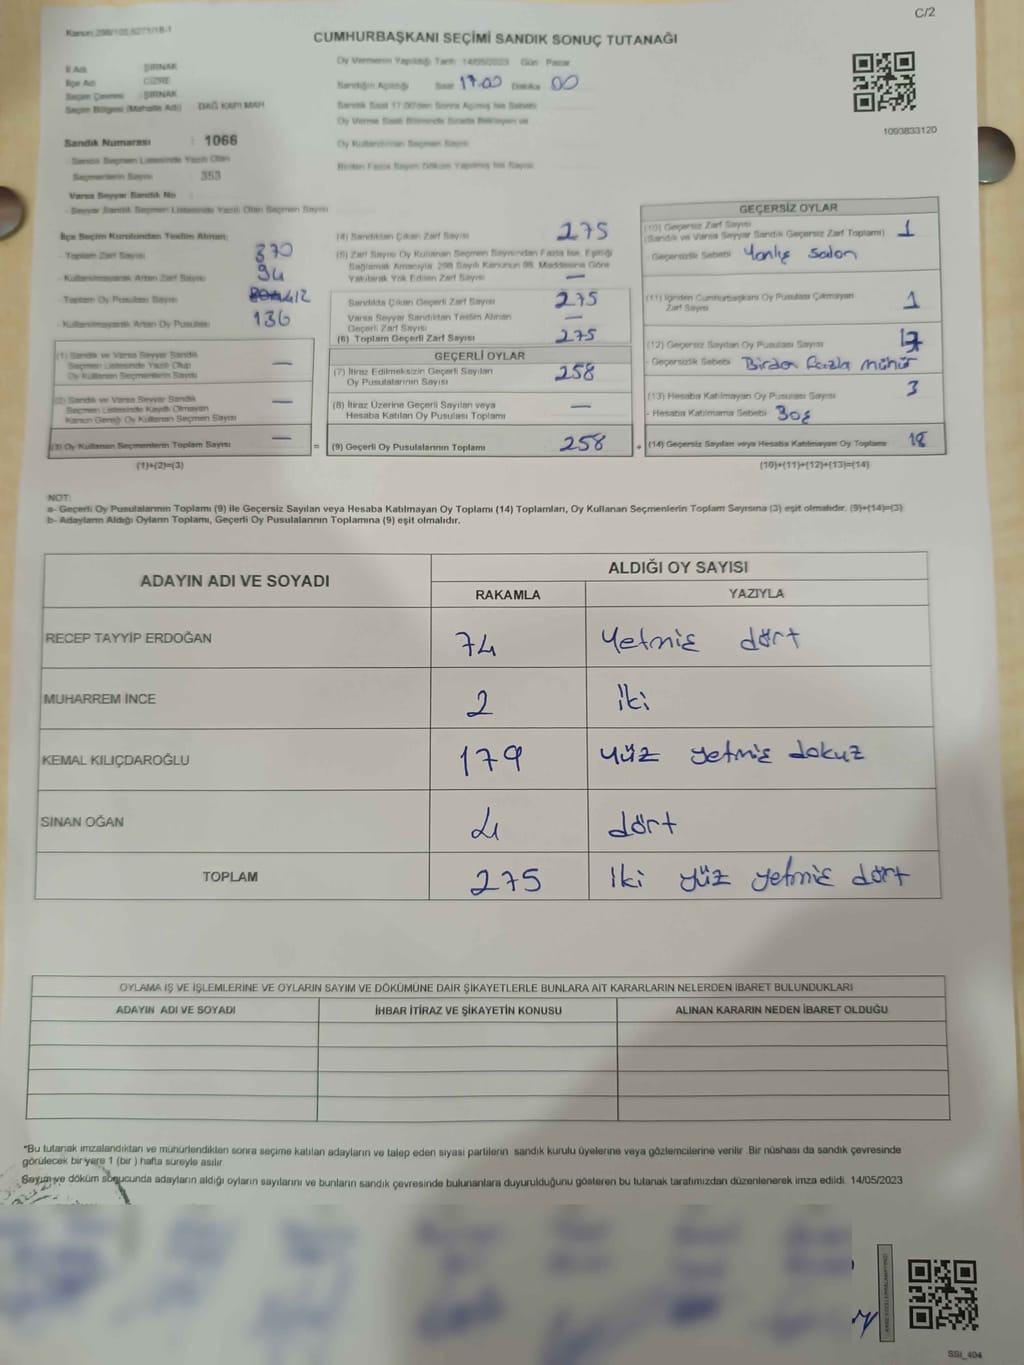 C/2
Kanun:298/105,6271/18-1
CUMHURBAŞKANI SEÇİMİ SANDIK SONUÇ TUTANAĞI
İl Adı : ŞIRNAK
İlçe Adı : CİZRE
Seçim Çevresi : ŞIRNAK
Seçim Bölgesi (Mahalle Adı) : DAĞ KAPI MAH
Oy Vermenin Yapıldığı Tarih 14/05/2023 Gün Pazar
Sandığın Açıldığı Saat 17.00 Dakika 00
Sandık Saat 17:00'den Sonra Açılmış İse Sebebi
Oy Verme Saati Bitiminde Sırada Bekleyen ve
Oy Kullandırılan Seçmen Sayısı
Birden Fazla Sayım Döküm Yapılmış İse Sayısı
1093833120
Sandık Numarası : 1066
Sandık Seçmen Listesinde Yazılı Olan
Seçmenlerin Sayısı : 353
Varsa Seyyar Sandık No
- Seyyar Sandık Seçmen Listesinde Yazılı Olan Seçmen Sayısı
İlçe Seçim Kurulundan Teslim Alınan;
- Toplam Zarf Sayısı 370
- Kullanılmayarak Artan Zarf Sayısı 94
- Toplam Oy Pusulası Sayısı 412
- Kullanılmayarak Artan Oy Pusulası 136
(1) Sandık ve Varsa Seyyar Sandık
Seçmen Listesinde Yazılı Olup
Oy Kullanan Seçmenlerin Sayısı —
(2) Sandık ve Varsa Seyyar Sandık
Seçmen Listesinde Kayıtlı Olmayan
Kanun Gereği Oy Kullanan Seçmen Sayısı —
(3) Oy Kullanan Seçmenlerin Toplam Sayısı —
(1)+(2)=(3)
(4) Sandıktan Çıkan Zarf Sayısı 275
(5) Zarf Sayısı Oy Kullanan Seçmen Sayısından Fazla İse, Eşitliği
Sağlamak Amacıyla, 298 Sayılı Kanunun 98. Maddesine Göre
Yakılarak Yok Edilen Zarf Sayısı —
Sandıkta Çıkan Geçerli Zarf Sayısı 275
Varsa Seyyar Sandıktan Teslim Alınan
Geçerli Zarf Sayısı —
(6) Toplam Geçerli Zarf Sayısı 275
GEÇERLİ OYLAR
(7) İtiraz Edilmeksizin Geçerli Sayılan
Oy Pusulalarının Sayısı 258
(8) İtiraz Üzerine Geçerli Sayılan veya
Hesaba Katılan Oy Pusulası Toplamı —
= (9) Geçerli Oy Pusulalarının Toplamı 258 +
GEÇERSİZ OYLAR
(10) Geçersiz Zarf Sayısı
(Sandık ve Varsa Seyyar Sandık Geçersiz Zarf Toplamı) 1
- Geçersizlik Sebebi Yanlış Salon
(11) İçinden Cumhurbaşkanı Oy Pusulası Çıkmayan
Zarf Sayısı 1
(12) Geçersiz Sayılan Oy Pusulası Sayısı
- Geçersizlik Sebebi Birden fazla mühür
(13) Hesaba Katılmayan Oy Pusulası Sayısı 3
- Hesaba Katılmama Sebebi Boş
(14) Geçersiz Sayılan veya Hesaba Katılmayan Oy Toplamı 18
(10)+(11)+(12)+(13)=(14)
NOT:
a- Geçerli Oy Pusulalarının Toplamı (9) ile Geçersiz Sayılan veya Hesaba Katılmayan Oy Toplamı (14) Toplamları, Oy Kullanan Seçmenlerin Toplam Sayısına (3) eşit olmalıdır. (9)+(14)=(3)
b- Adayların Aldığı Oyların Toplamı, Geçerli Oy Pusulalarının Toplamına (9) eşit olmalıdır.
ADAYIN ADI VE SOYADI
ALDIĞI OY SAYISI
RAKAMLA YAZIYLA
RECEP TAYYİP ERDOĞAN 74 Yetmiş dört
MUHARREM İNCE 2 İki
KEMAL KILIÇDAROĞLU 179 yüz yetmiş dokuz
SİNAN OĞAN 4 dört
TOPLAM 275 İki yüz yetmiş dört
OYLAMA İŞ VE İŞLEMLERİNE VE OYLARIN SAYIM VE DÖKÜMÜNE DAİR ŞİKAYETLERLE BUNLARA AİT KARARLARIN NELERDEN İBARET BULUNDUKLARI
ADAYIN ADI VE SOYADI İHBAR İTİRAZ VE ŞİKAYETİN KONUSU ALINAN KARARIN NEDEN İBARET OLDUĞU
*Bu tutanak imzalandıktan ve mühürlendikten sonra seçime katılan adayların ve talep eden siyasi partilerin sandık kurulu üyelerine veya gözlemcilerine verilir. Bir nüshası da sandık çevresinde
görülecek bir yere 1 (bir ) hafta süreyle asılır.
Sayım ve döküm sonucunda adayların aldığı oyların sayılarını ve bunların sandık çevresinde bulunanlara duyurulduğunu gösteren bu tutanak tarafımızdan düzenlenerek imza edildi. 14/05/2023
SSİ_404